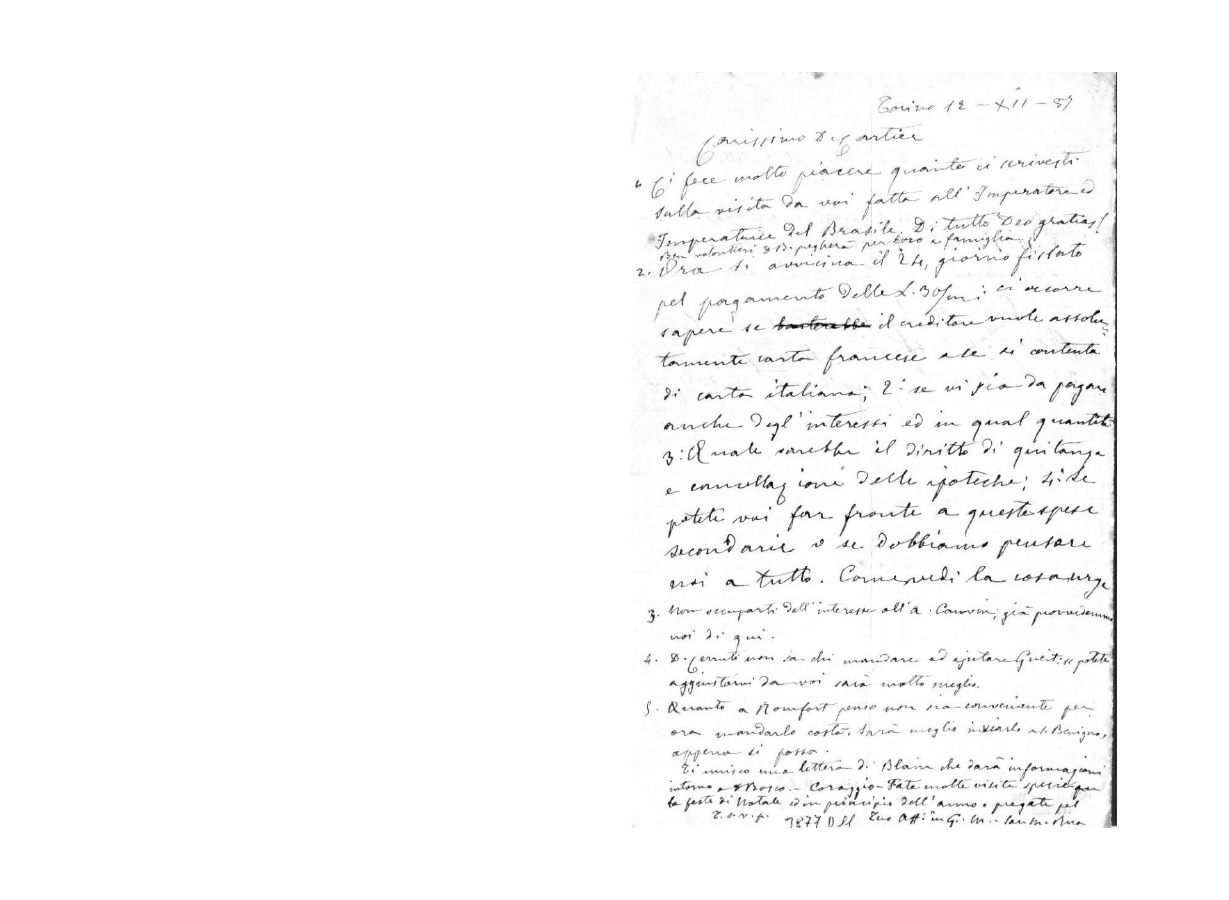 Torino 12 - XII - 87
Carissimo D. Cartier
1. Ci fece molto piacere quanto ci scrivesti
sulla visita da voi fatta all' Imperatore ed
Imperatrice del Brasile. Di tutto Deo gratias!
Ben volontieri D B. pregherà per loro e famiglia.
2. Ora si avvicina il 24, giorno fissato
pel pagamento delle L. 30/m: ci occorre
sapere se basterebbe il creditore vuole assolu-
tamente carta francese o se si contenta
di carta italiana; 2° se vi sia da pagare
anche degl' interessi ed in qual quantità
3° Quale sarebbe il diritto di quitanza
e cancellazione delle ipoteche; Se
potete voi far fronte a queste spese
secondarie o se dobbiamo pensare
noi a tutto. Come vedi la cosa urge
3. Non occuparti dell' interesse all' a. Cauvin; già provvidemmo
noi di qui.
4. D. Cerruti non sa chi mandare ad ajutare se potete
aggiustarvi da voi sarà molto meglio.
5. Quanto a Romfort penso non sia conveniente per
ora mandarlo costà. Sarà meglio inviarlo a S. Benigno,
appena si possa.
Ti unisco una lettera di Blain che darà informazioni
intorno a D Bosco. - Coraggio - Fate molte visite specie per
le feste di Natale ed in principio dell' anno e pregate pel
T. s. v. p. 3877 Tuo Aff. in G. M. - Sac. M. Rua